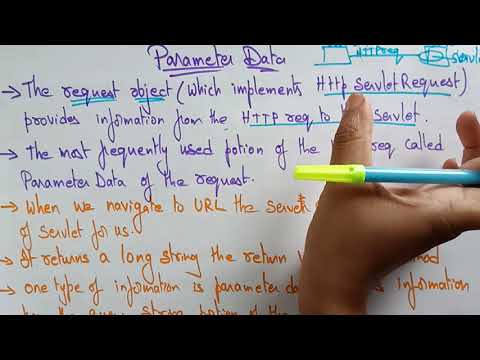 Parameter Data
HTTP req
→ The request object (which implements Http ServletRequest)
provides information from the HTTP req to servlet.
→ The most frequently used potion of the req called
Parameter Data of the request.
→ When we navigate to URL the
of servlet for us.
→ It returns a long string the return
→ one type of information is parameter information